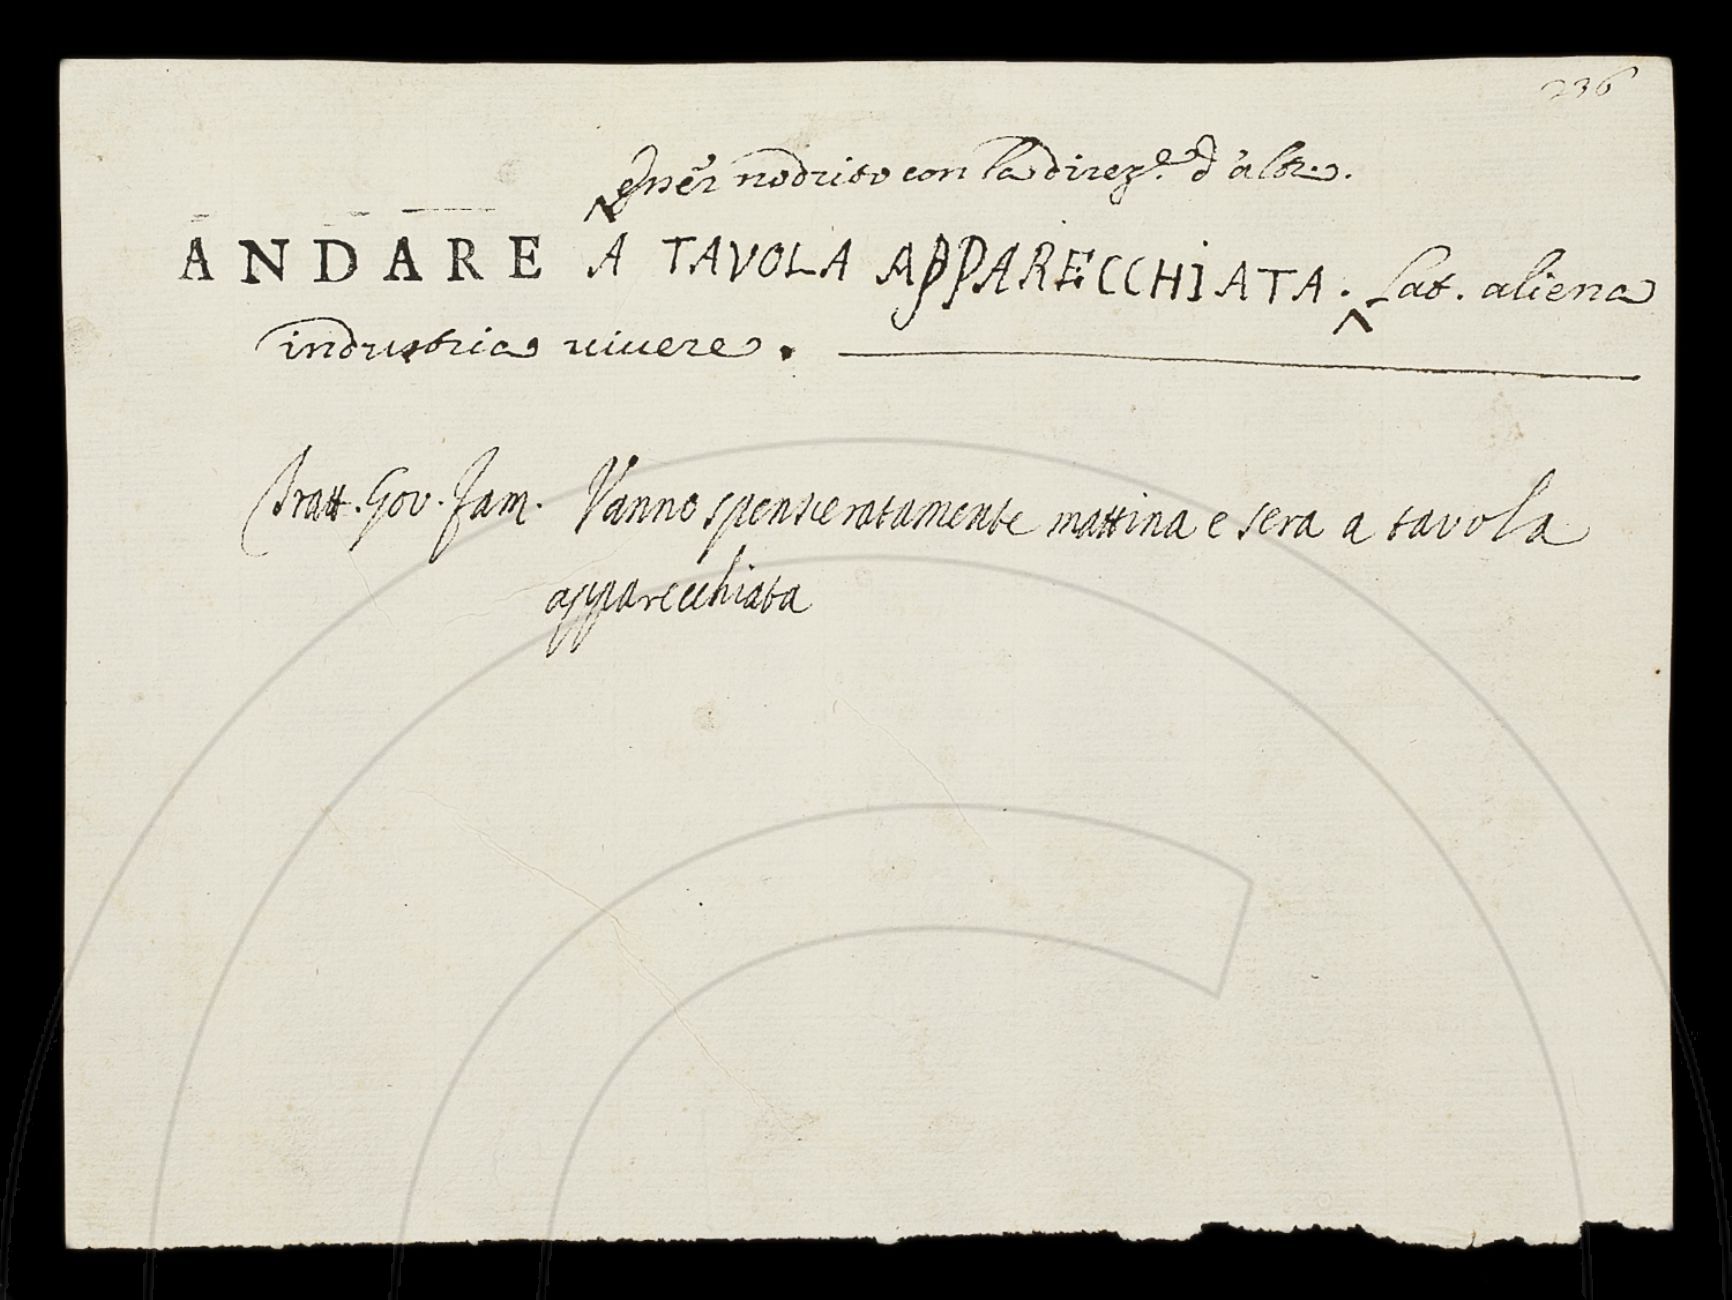 236
Esser nodrito con la direz.e d'altri.
ANDARE A TAVOLA APPARECCHIATA. Lat. aliena
industria uiuere.
Tratt. Gov. fam. Vanno spensieratamente mattina e sera a tavola
apparecchiata